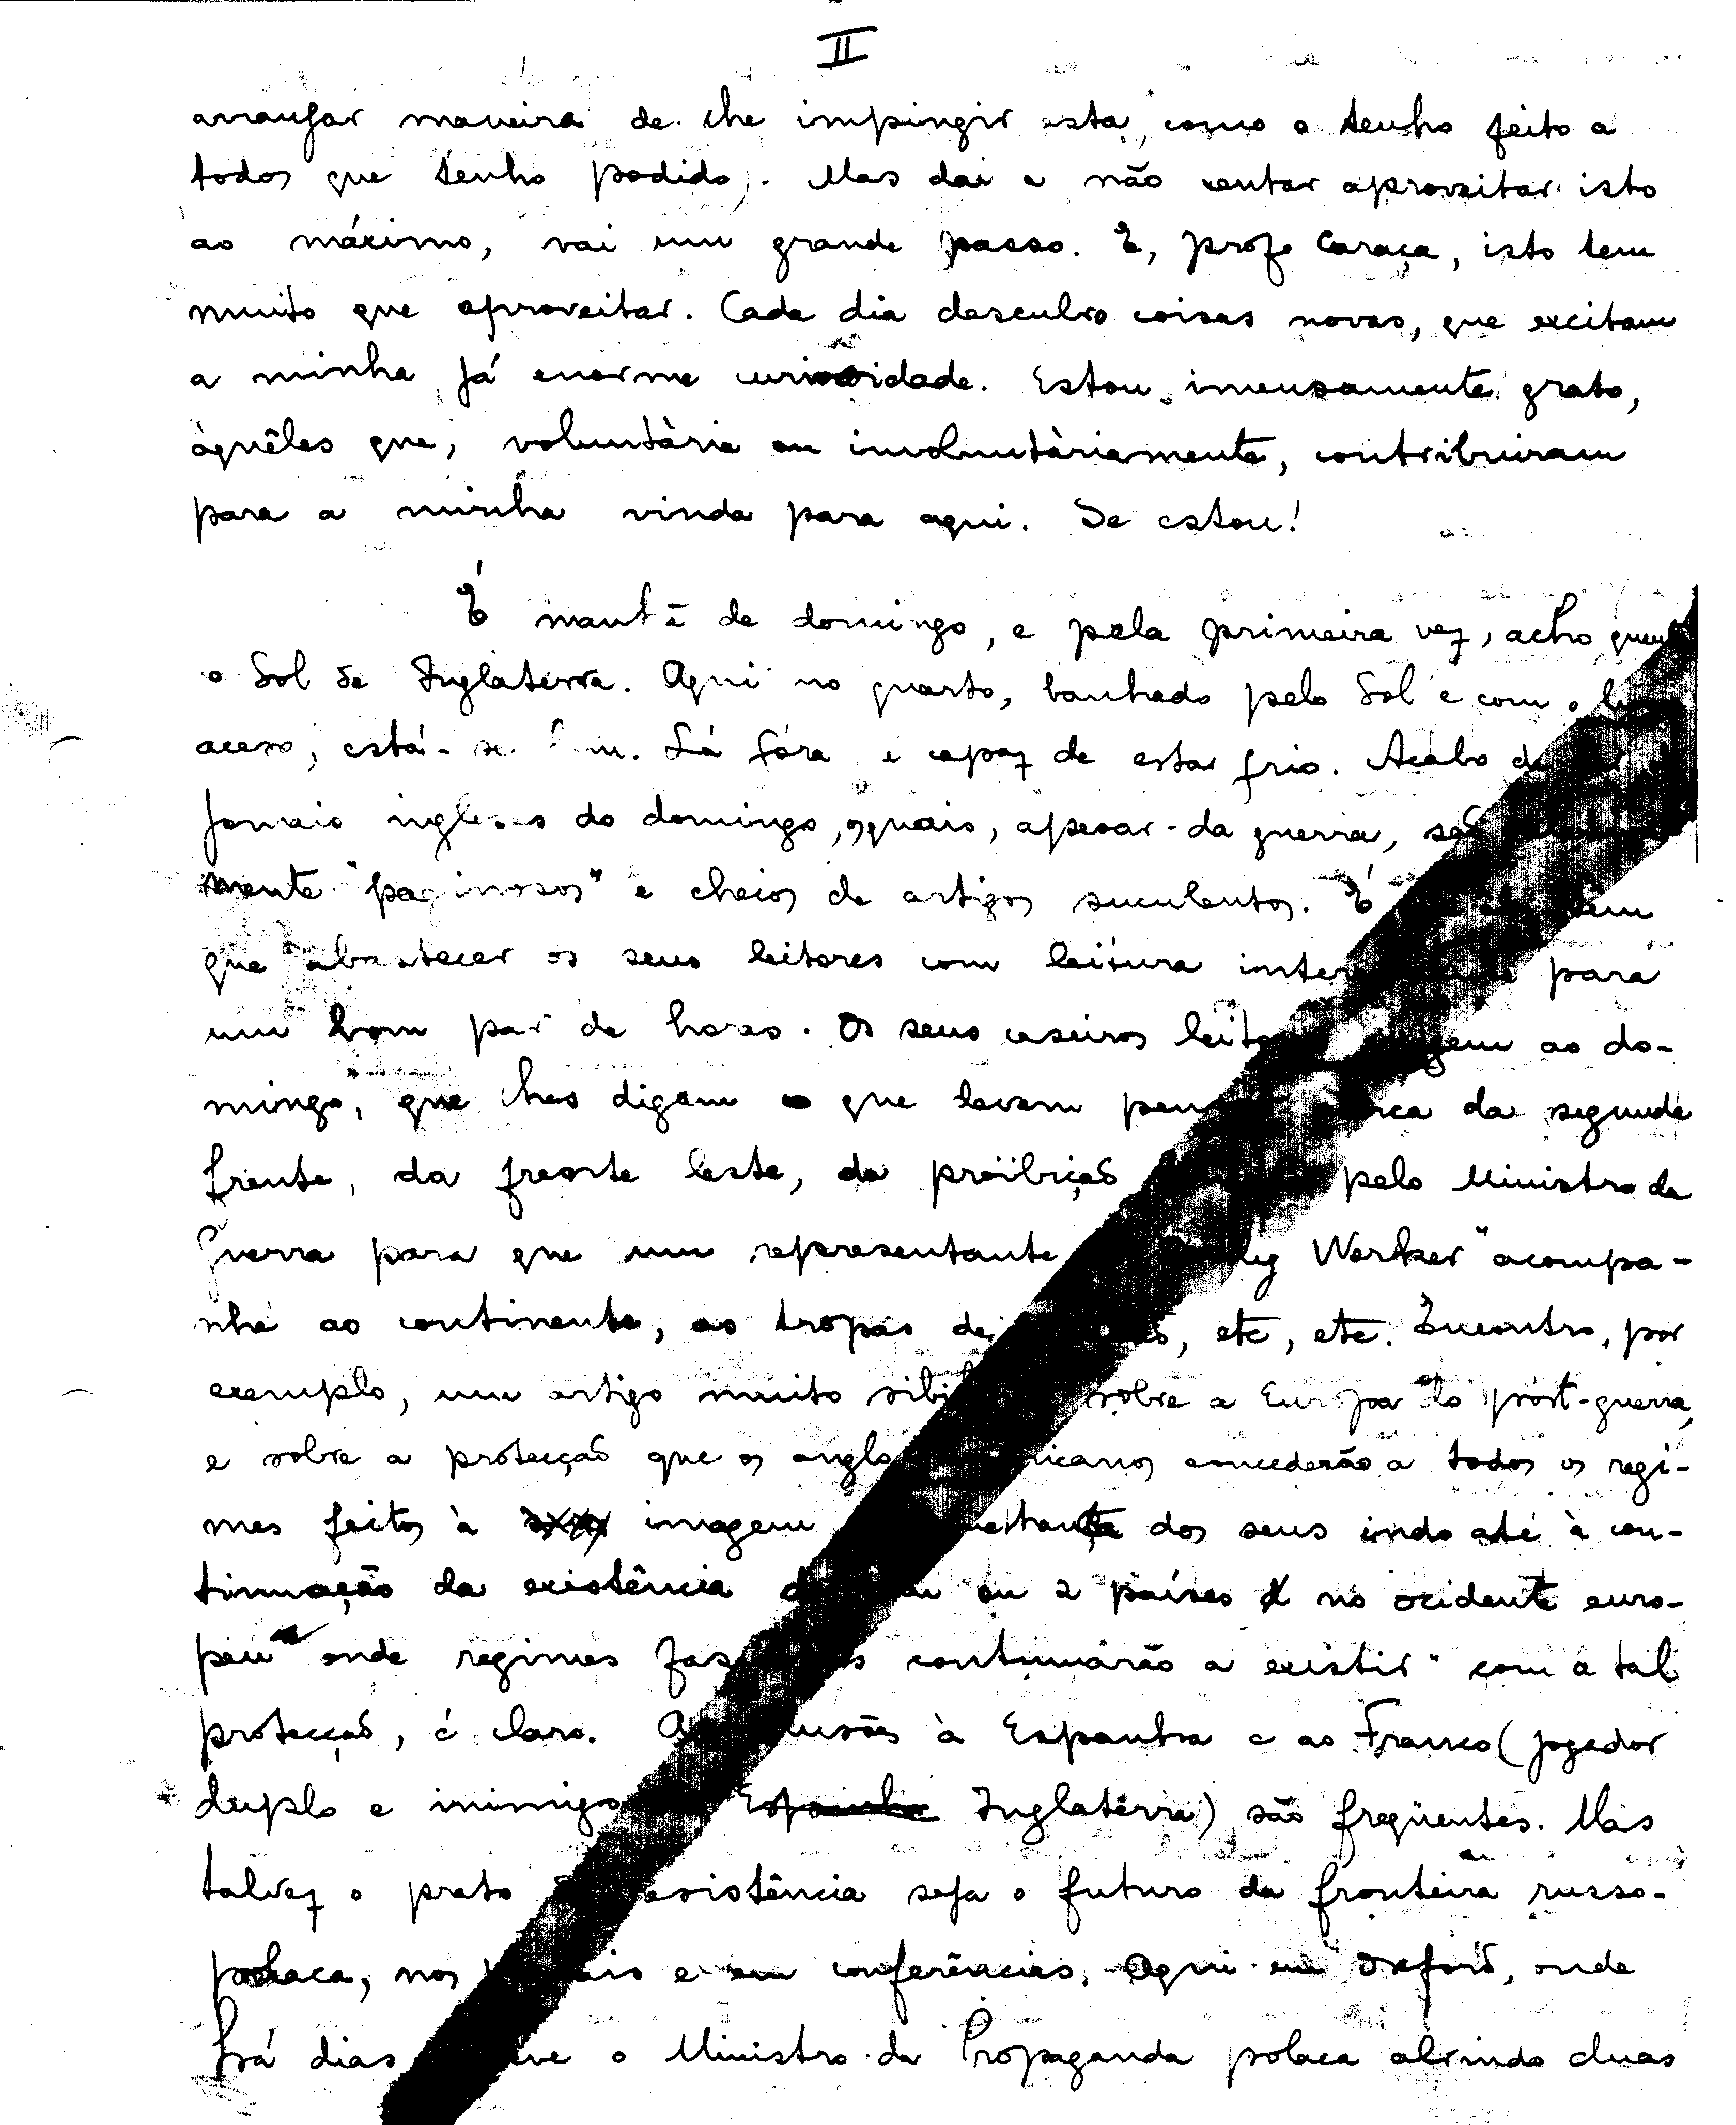 II
arranjar maneira de lhe impingir esta, como o tenho feito a
todos que tenho podido). Mas daí a não tentar aproveitar isto
ao máximo, vai um grande passo. E, prof. Caraça, isto tem
muito que aproveitar. Cada dia descubro coisas novas, que excitam
a minha já enorme curiosidade. Estou imensamente grato,
àquêles que, voluntària ou involuntàriamente, contribuiram
para a minha vinda para aqui. Se estou!
É manhã de domingo, e pela primeira vez, acho
o Sol de Inglaterra. Aqui no quarto, banhado pelo Sol e com o
aceso, está-se. Lá fóra é capaz de estar frio. Acabo de
jornais ingleses do domingo, os quais, apesar-da guerra, são
mente "paginosos" e cheios de artigos suculentos. É
que abastecer os seus leitores com leitura para
um bom par de horas. Os seus caseiros ao do-
mingo, que lhes digam o que devem da segunda
frente, da frente leste, da proïbiçaõ pelo Ministro da
Guerra para que um representante Worker" acompa-
nhe ao continente, as tropas de, etc, etc. Encontro, por
exemplo, um artigo muito sobre a Europa do post-guerra,
e sobre a protecçaõ que os anglo concederão a todos os regi-
mes feitos à imagem dos seus indo até à con-
tinuação da existência ou 2 países no ocidente euro-
peu onde regimes continuarão a existir" com a tal
protecçaõ, é claro. à Espanha e ao Franco (jogador
duplo e inimigo Inglaterra) são freqüentes. Mas
talvez o prato seja o futuro da fronteira russo-
polaca, nos e em conferências. Aqui em Oxford, onde
há dias o Ministro da Propaganda polaca abrindo duas